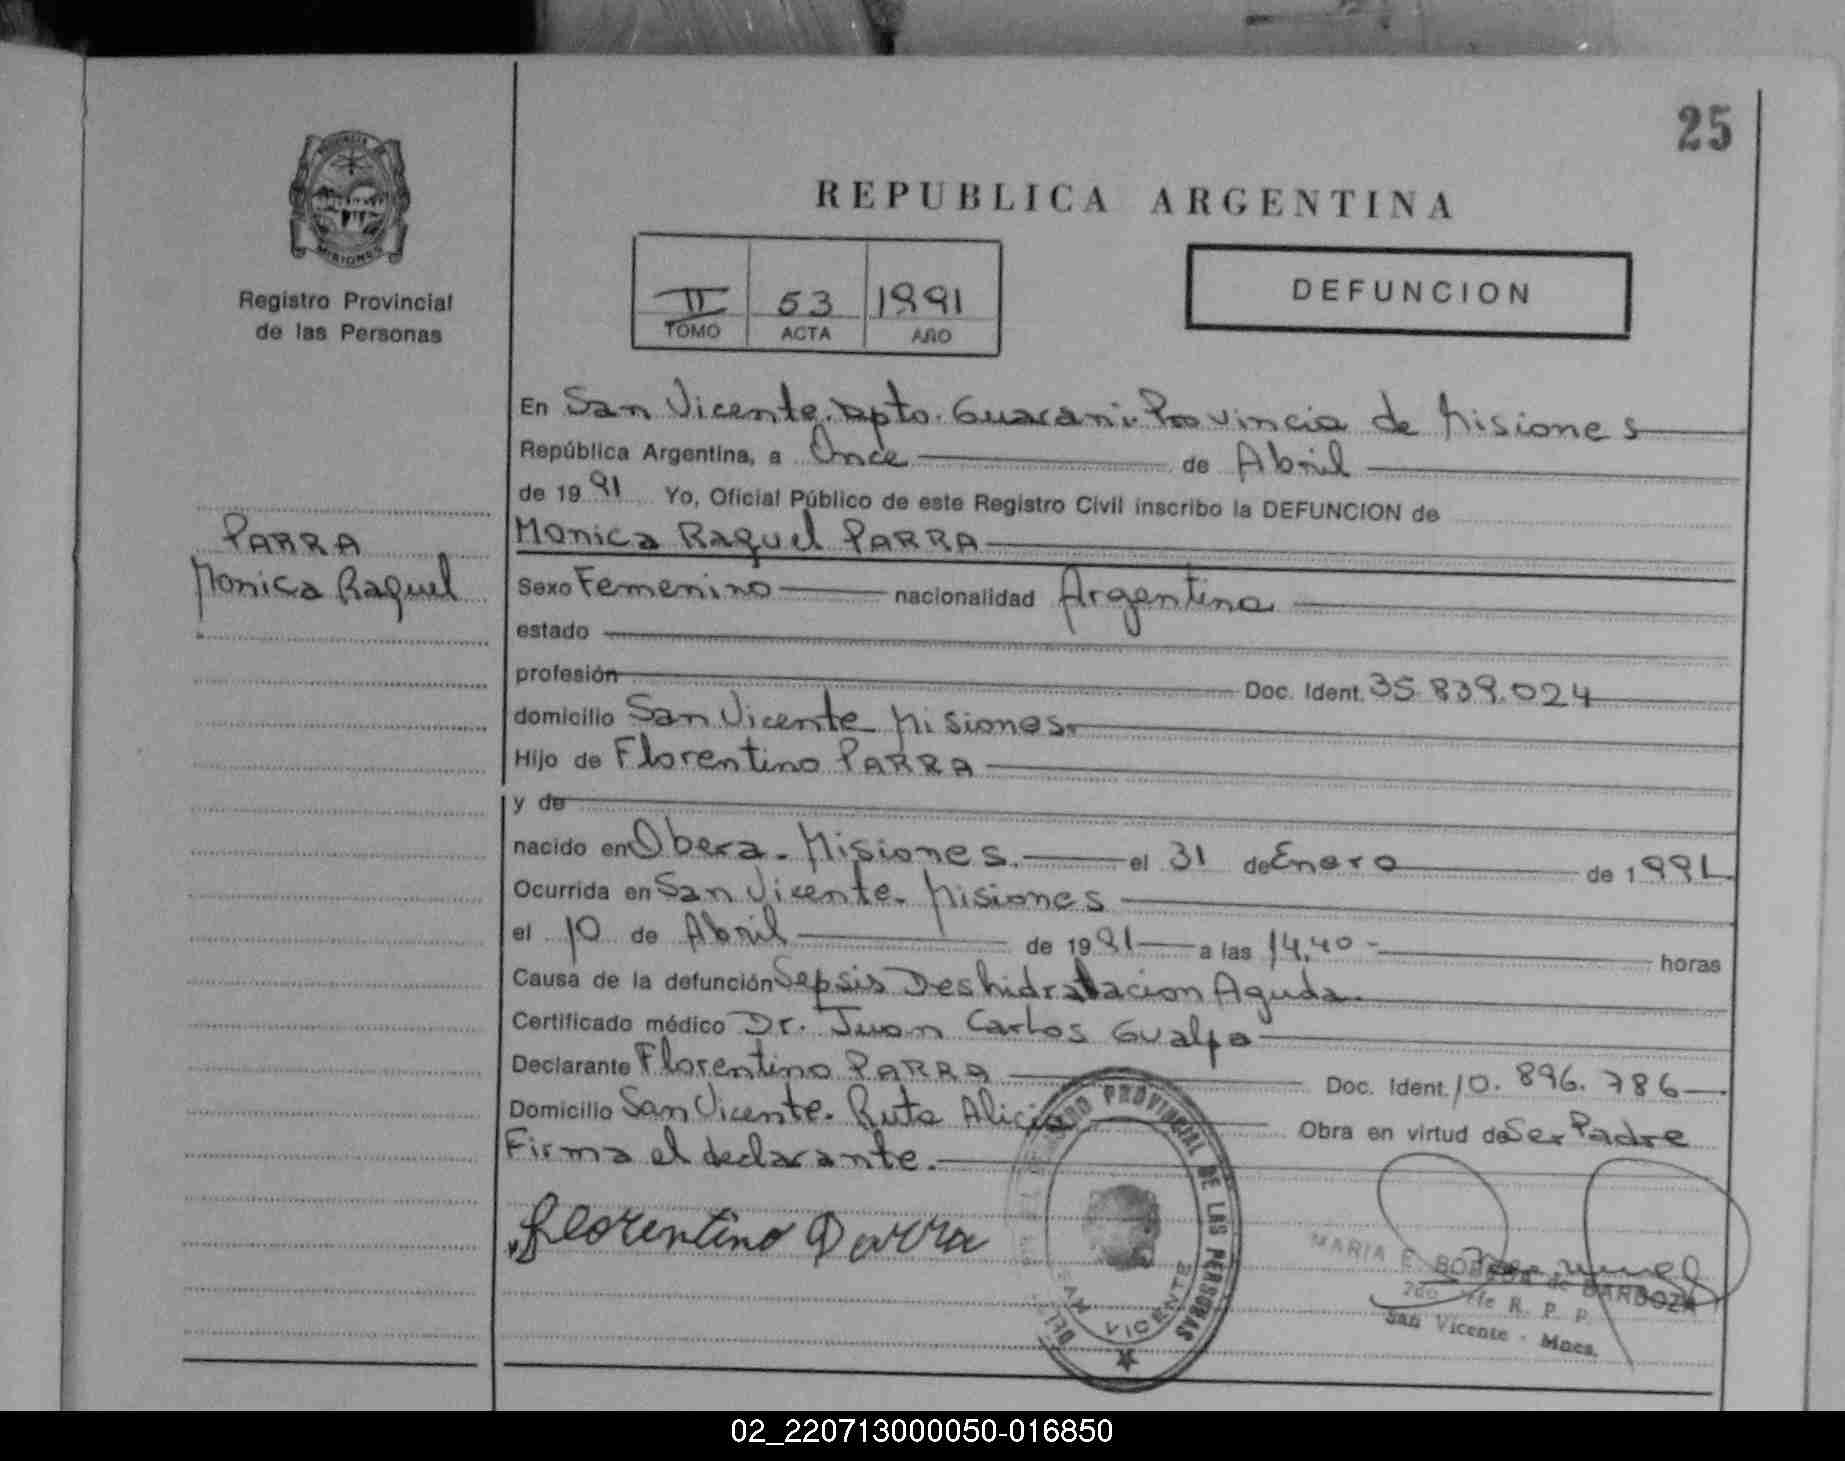 25
PROVINCIA DE
MISIONES
Registro Provincial
de las Personas
REPUBLICA ARGENTINA
II 53 1991
TOMO ACTA AÑO
DEFUNCION
PARRA
Monica Raquel
En San Vicente. Dpto. Guarani. Provincia de Misiones
República Argentina, a Once de Abril
de 1991 Yo, Oficial Público de este Registro Civil inscribo la DEFUNCION de
Monica Raquel PARRA
Sexo Femenino nacionalidad Argentina
estado
profesión Doc. Ident. 35.839.024
domicilio San Vicente Misiones.
Hijo de Florentino PARRA
y de
nacido en Obera. Misiones. el 31 de Enero de 1991
Ocurrida en San Vicente. Misiones
el 10 de Abril de 1991 a las 14,40 - horas
Causa de la defunción Sepsis Deshidratacion Aguda.
Certificado médico Dr. Juan Carlos Gualpa
Declarante Florentino PARRA Doc. Ident. 10.896.786
Domicilio San Vicente. Ruta Alicia Obra en virtud de Ser Padre
Firma el declarante.
Florentino Parra
REGISTRO PROVINCIAL DE LAS PERSONAS
SAN VICENTE
MARIA E. de BARBOZA
2do. Jefe R. P. P.
San Vicente - Mnes.
02_220713000050-016850